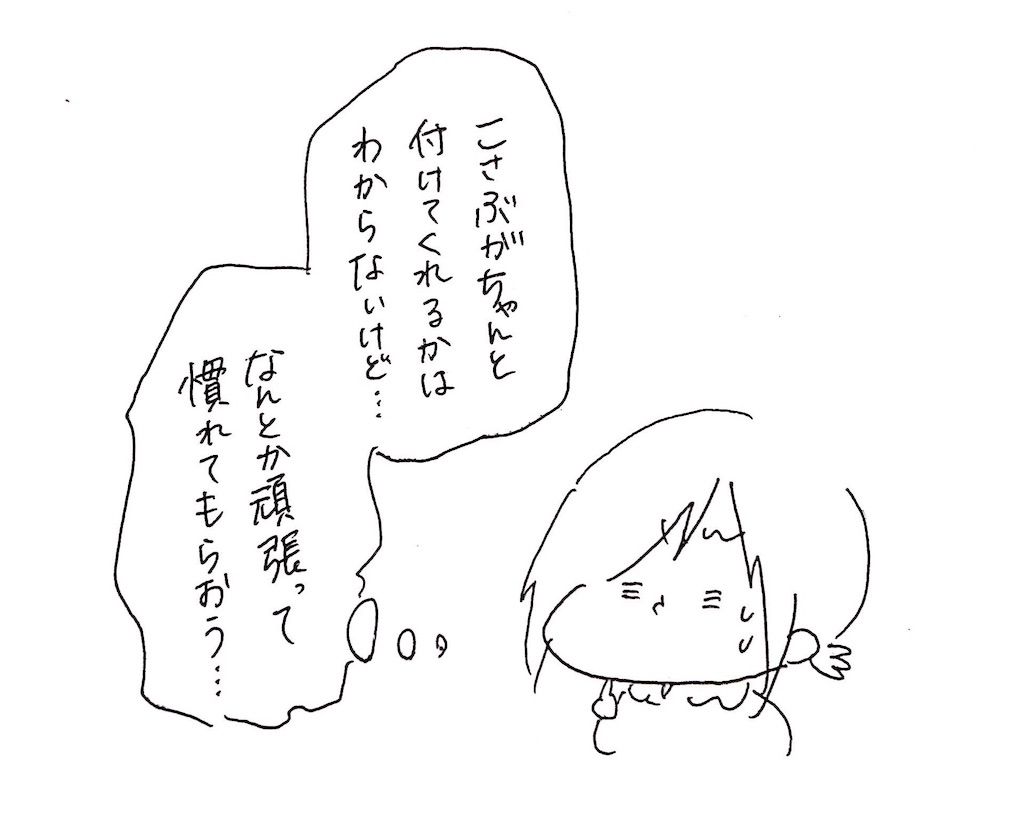 こさぶがちゃんと
付けてくれるかは
わからないけど…
なんとか頑張って
慣れてもらおう…